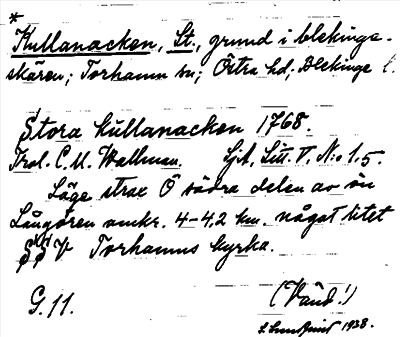 *
Kullanacken, St., grund i blekinge-
skären; Torhamn sn; Östra hd; Blekinge l.
Stora Kullanacken 1768.
Trol. C. U. Wallman. Litt. V, N:o 1.5.
Läge strax Ö södra delen av ön
Långören omkr. 4-4,2 km. något litet
V Torhamns kyrka.
G. 11. (Vänd!)
1928.